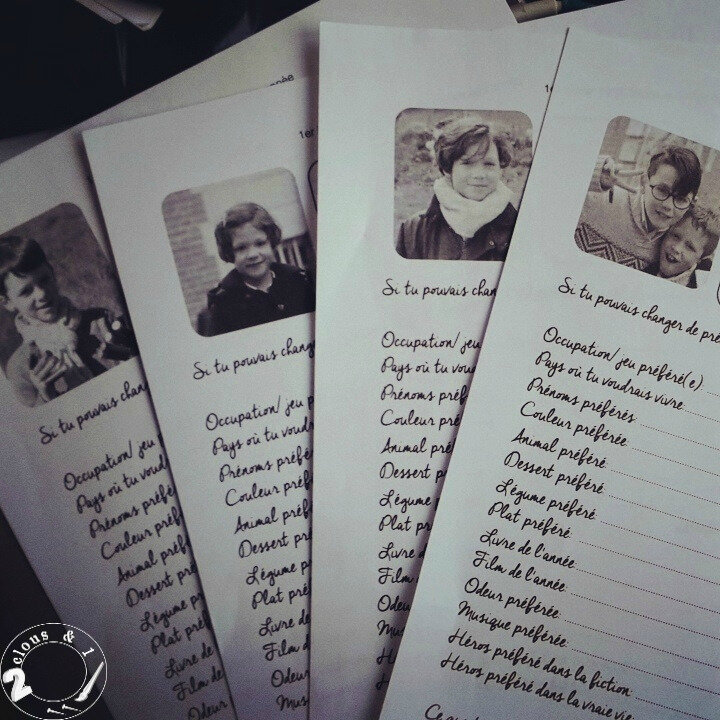 nnée
Si tu pouvais chan
Occupation/ jeu
Pays où tu voud
Prénoms préfé
Couleur préf
Animal préf
Dessert pr
Légume pré
Plat pré
Livre de
Film de
Odeur
1er
Si tu pouvais chang
Occupation/ jeu p
Pays où tu voudr
Prénoms préfé
Couleur préf
Animal préf
Dessert pré
Légume p
Plat pré
Livre de
Film d
Odeur
Mus
1e
Si tu pouvais chan
Occupation/ jeu
Pays où tu vou
Prénoms préf
Couleur pr
Animal pré
Dessert p
Légume
Plat pr
Livre d
Film
Odeu
Mu
H
H
Si tu pouvais changer de pré
Occupation/ jeu préféré(e)
Pays où tu voudrais vivre
Prénoms préférés
Couleur préférée
Animal préféré
Dessert préféré
Légume préféré
Plat préféré
Livre de l'année
Film de l'année
Odeur préférée
Musique préférée
Héros préféré dans la fiction
Héros préféré dans la vraie vie
2 clous & 1